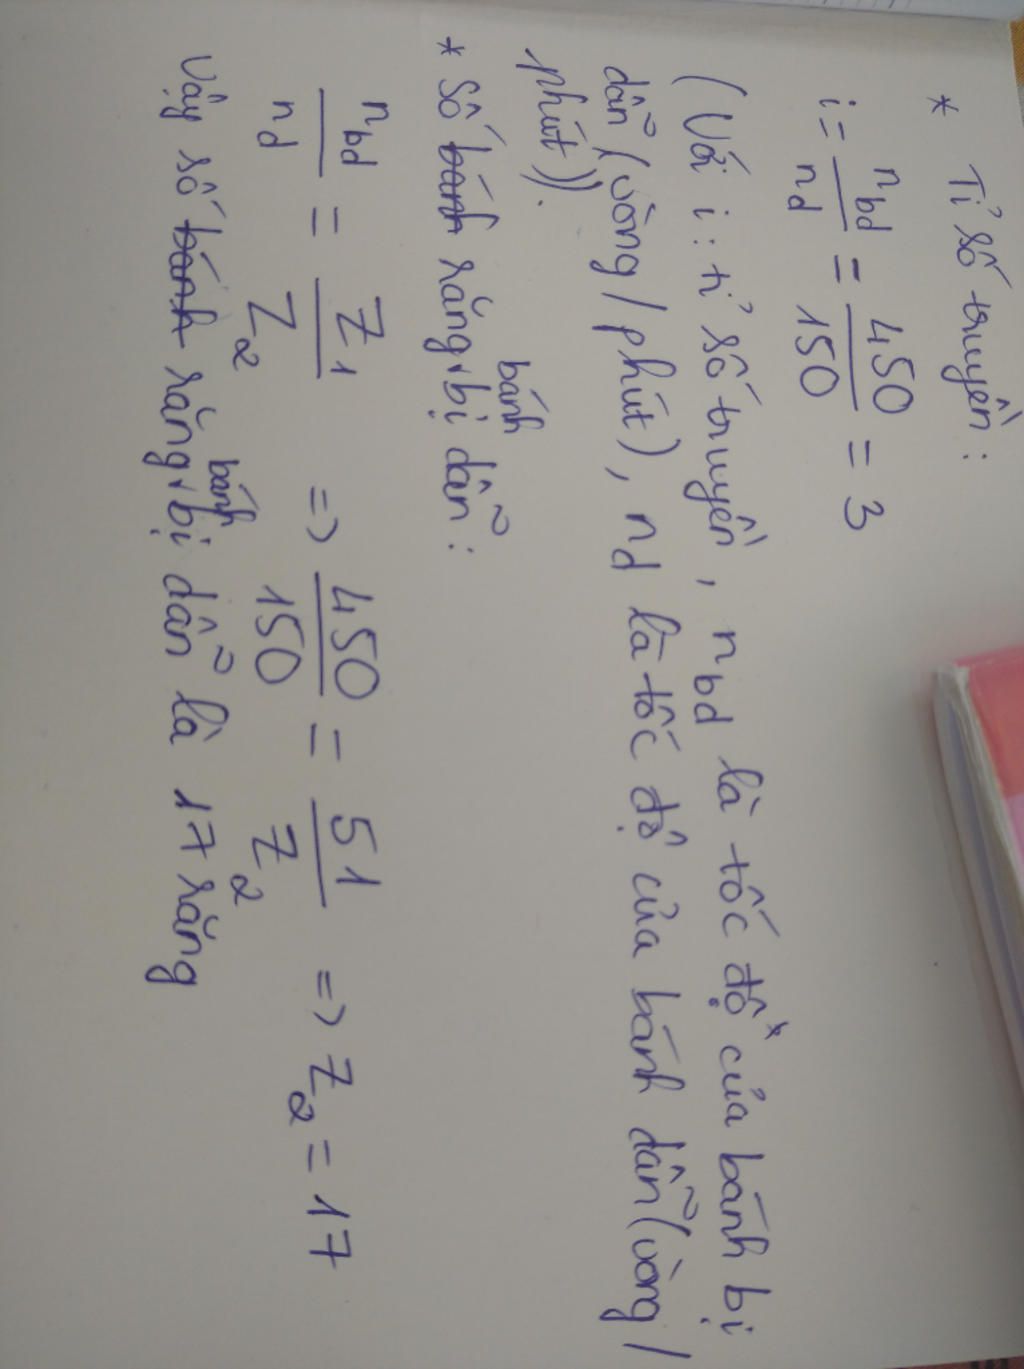 * Tỉ số truyền:
i = n_bd / n_d = 450 / 150 = 3
(Với i: tỉ số truyền, n_bd là tốc độ của bánh bị
dẫn (vòng/phút), n_d là tốc độ của bánh dẫn (vòng/
phút)).
* Số bánh răng bánh bị dẫn:
n_bd / n_d = Z_1 / Z_2 => 450 / 150 = 51 / Z_2 => Z_2 = 17
Vậy số bánh răng bánh bị dẫn là 17 răng